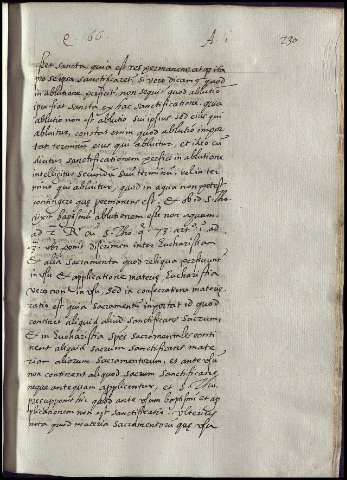 q. 66. A. 1 230
set sancta quia est res permanens atq; ita
no se ipsa sanctificaret: si vero dicamus quod
in ablutione perficit. non sequit quod ablutio
ipsa fiat sancta ex hac sanctificatione, quia
ablutio non est ablutio sui ipsius sed eius qui
abluitur, constat enim quod ablutio impor
tat terminum eius qui abluitur, et ideo cu
dicitur sanctificationem perfici in ablutione
intelligitur secundum suu terminu: velut in ter
mino qui abluitur, quod in aqua non potest
contingere que permanens est, et ob id S. Tho
dixit baptismu ablutionem esse non aquam.
ad 2. R. cu S. Tho q. 73. art. 1. ad
3. ubi ponit discrimen inter Eucharistiam
et alia sacramenta quod reliqua perficiunt
in usu et applicatione materiæ Eucharistia
vero non in usu, sed in consecratione materiæ,
ratio est quia sacramentu importat id quod
continet aliquid aliud sanctificans sacrum,
et in Eucharistia spes sacramentales conti
nent aliquid sacrum sanctificans mate
riam aliorum sacramentorum, et ante usu
non continent aliquod sacrum sanctificans
neque antequam applicentur, et S. Tho.
presupponit hic quod ante usum baptismi et ap
plicationem non est sanctificatio. Ulterius
nota quod materia sacramentorum que usu